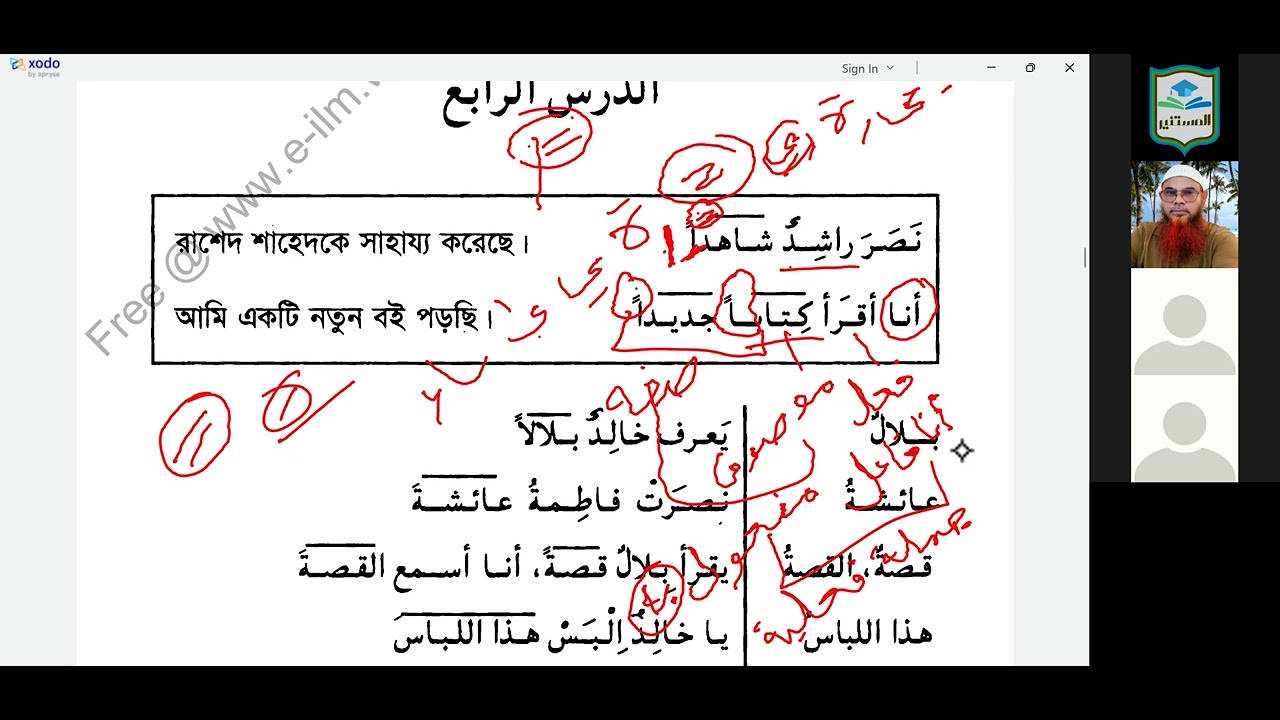 xodo
by apryse
Sign In
الدرس الرابع
Free @www.e-ilm.
نَصَرَ راشِدٌ شاهداً
রাশেদ শাহেদকে সাহায্য করেছে।
أنا أقرَأ كِتاباً جديداً
আমি একটি নতুন বই পড়ছি।
بلالٌ
يَعرف خالِدٌ بلالاً
عائشةُ
نصَرَتْ فاطِمةُ عائشةَ
قصةٌ، القصةُ
يقرأ بِلالٌ قصةً، أنا أسمع القصةَ
هذا اللباسُ
يا خالِدُ اِلْبَسْ هذا اللباسَ
المستنير
صفة
موصوف
فعل
أنا فاعل
مفعول به
جملة فعلية